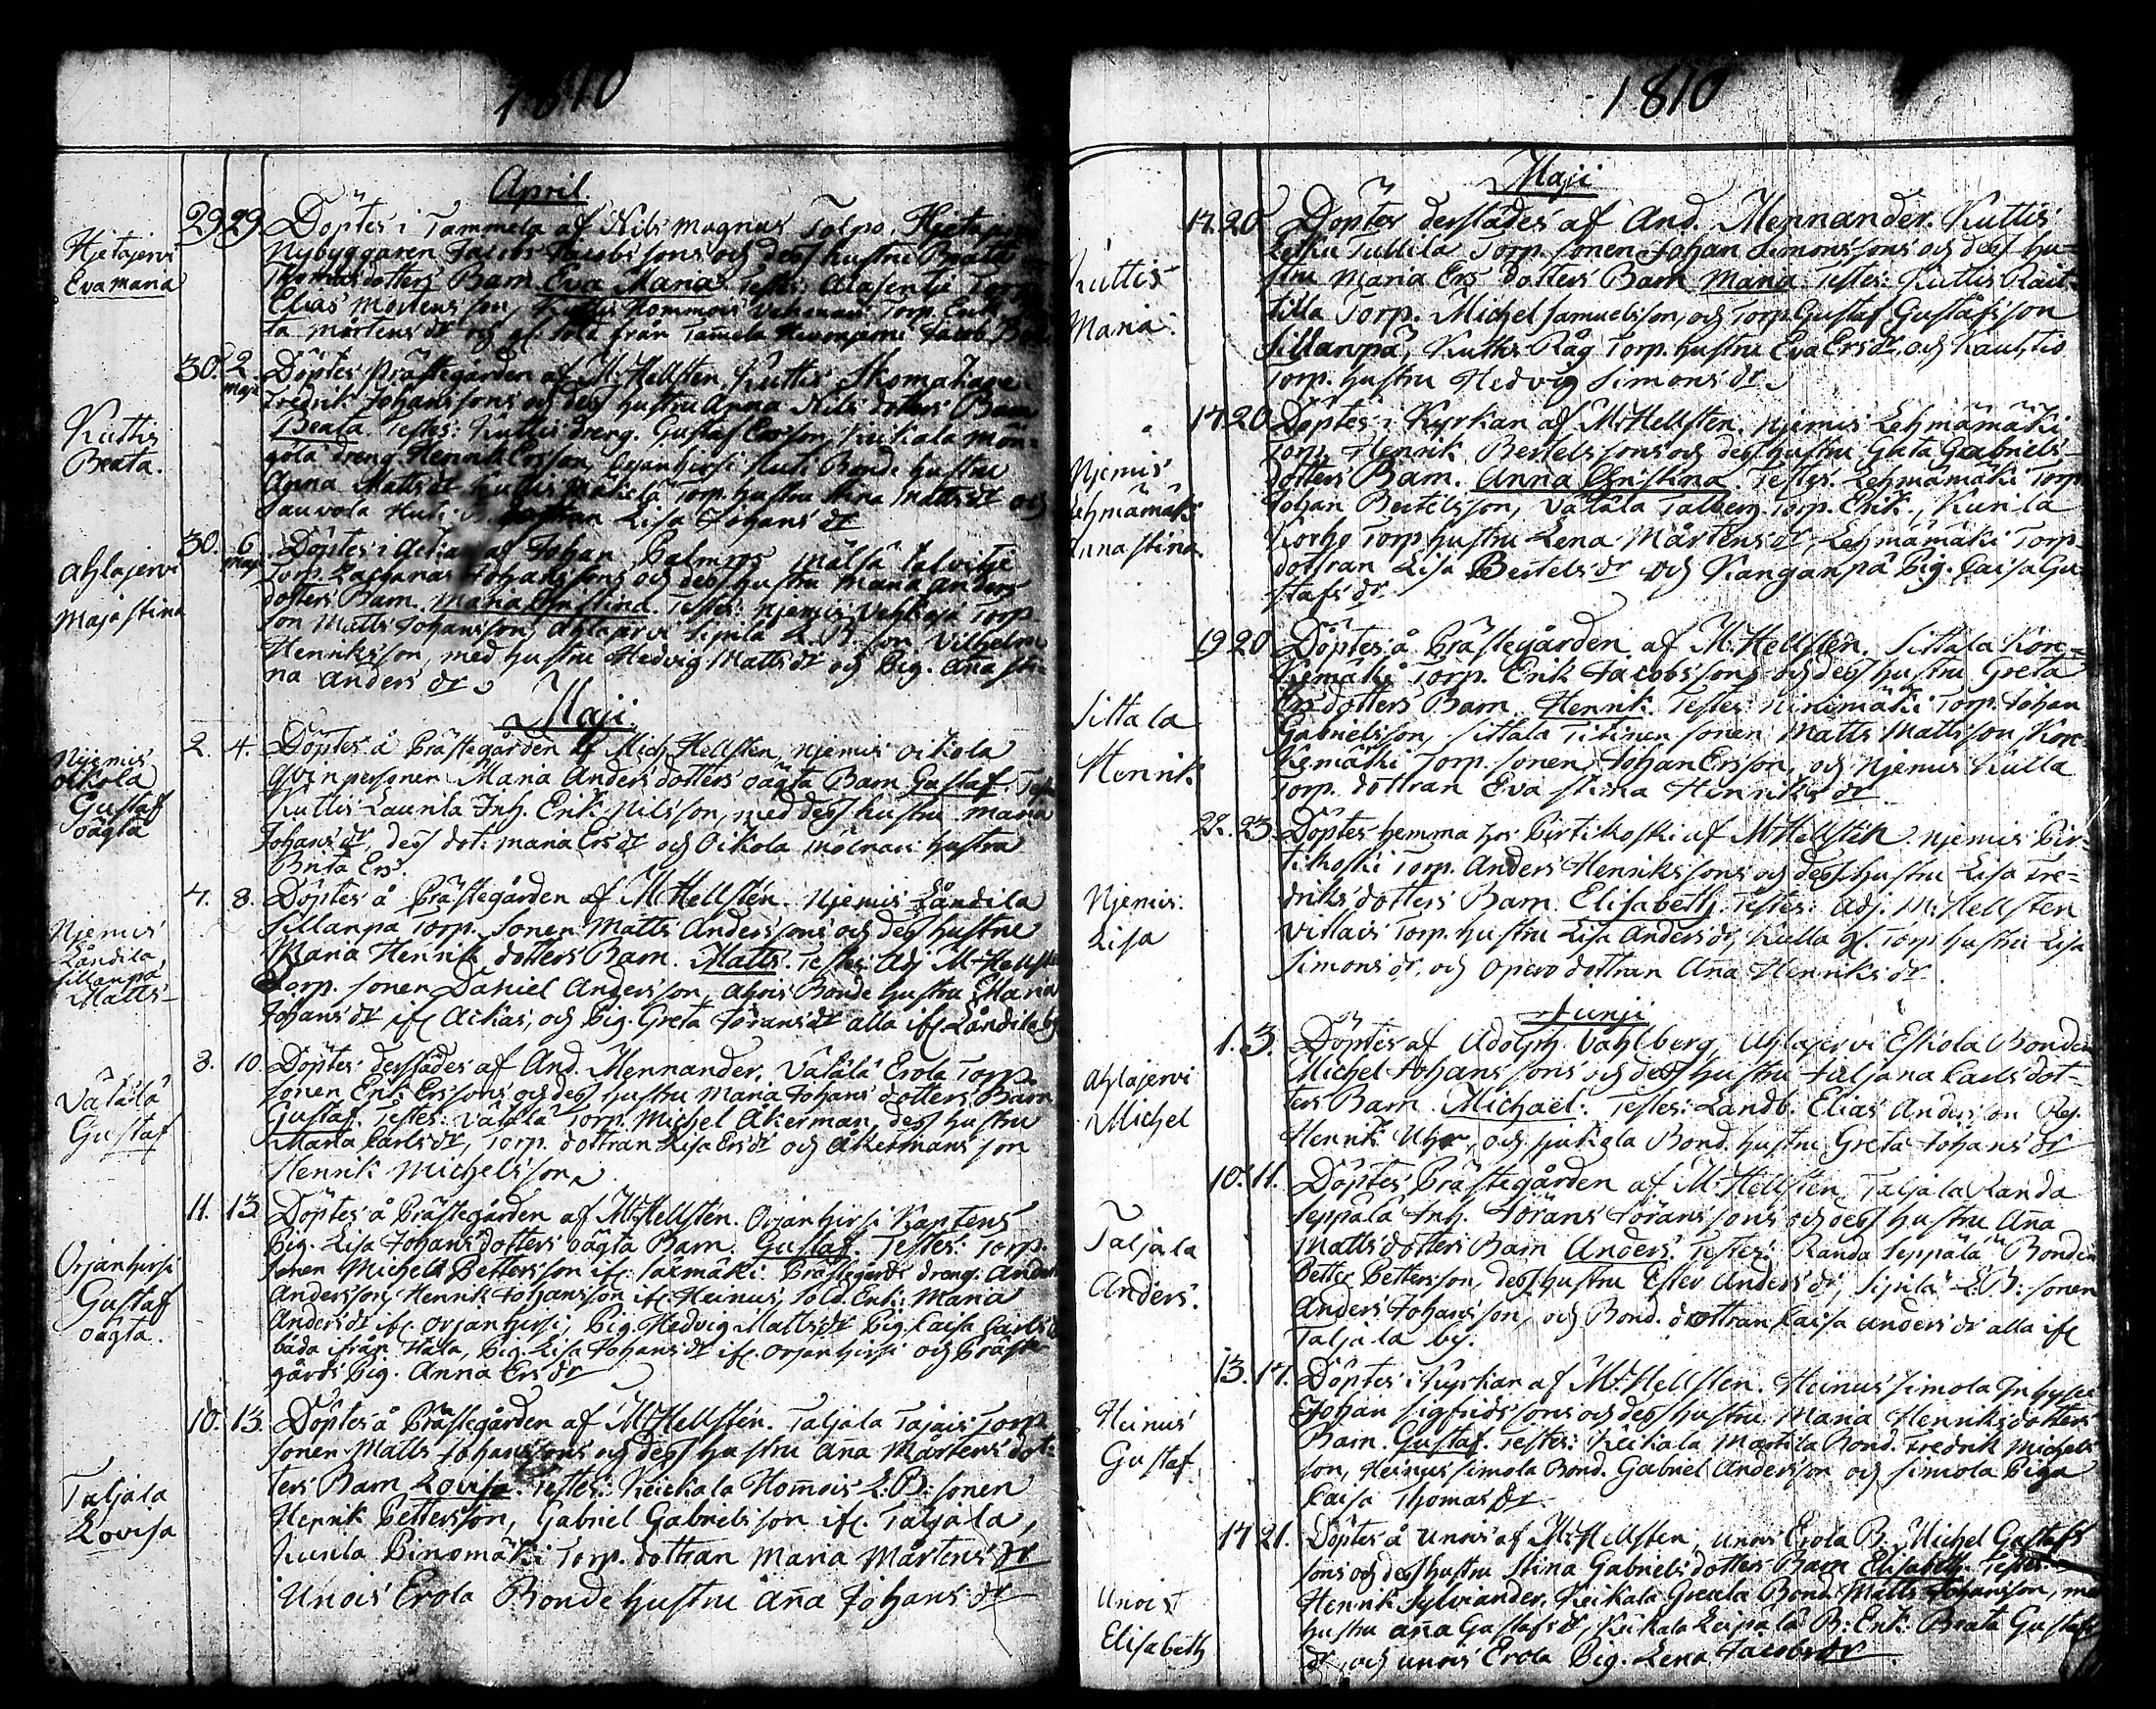 1810
April.
Hjetajervi
Evamaria
29 29 Döptes i Tammela af Nils Magnus Tolpo, Hjetajer
Nybyggaren Jacob Jacobs sons och dess hustru Beata
Thomasdotters Barn Eva Maria. Testes: Alasentie Torp
Elias Mårtensson, Kuttis Hommois Torp. Enk
ta Mårtens dr och gl. sold. från Tam̄ela Jacob
Kuttis
Beata.
30. 2 maji Döptes Prästegården af M: Hellsten, Kuttis Skomakare
Fredrik Johanssons och dess hustru Anna Nils dotters Barn
Beata. Testes: Kuttis dreng. Gustaf Ersson, Keikala Mön-
gölä dreng. Henrik Ersson, Orjanhirsi Huti Bonde hustru
Anna Mattsdr Kuttis Mäkelä Torp. hustru Stina Mattsdr och
Sauvola Huti Lisa Johans dr
Ahlajervi
Majastina
30. 6 maji Döptes i af Johan Palmros Mälsä Talvitie
Torp. Zacharias Johanssons och dess hustru Maria Anders
dotters Barn. Maria Christina. Testes: Njemis Torp.
son Matts Johansson, Ahlajervi Sipilä L. B. son Vilhelm
Henriksson, med hustru Hedvig Matts dr och Pig. Ana Sti-
na Anders dr
Maji.
Njemis
Oikola
Gustaf
oägta
2. 4. Döptes å Prästegården af Mich. Hellsten, Njemis Oikola
qvinpersonen Maria Anders dotters oägta Barn Gustaf. Testes
Kuttis Laurila Inh. Erik Nilsson, med dess hustru Maria
Johans dr, dess dot. Maria Ers dr och Oikola hustru
Brita Ers.
Njemis
Låndila,
Sillanpä
Matts
4. 8. Döptes å Prästegården af M: Hellsten. Njemis Låndila
Sillanpä Torp. Sonen Matts Anderssons och dess hustru
Maria Henriks dotters Barn. Matts. Testes: Adj. M: Hellsten
Torp. sonen Daniel Andersson, Bonde hustru Maria
Johans dr if. Ackas, och Pig. Greta Jörans dr alla if. Låndila by
Vätälä
Gustaf
8. 10. Döptes derstädes af And. Mennander. Vätälä Erola Torp.
sonen Erik Erssons och dess hustru Maria Johans dotters Barn
Gustaf. Testes: Vätälä Torp. Michel Åkerman, dess hustru
Maria Carls dr, Torp. dottran Lisa Ers dr och Åkermans son
Henrik Michelsson
Orjanhirsi
Gustaf
oägta.
11. 13 Döptes å Prästegården af M: Hellsten. Orjanhirsi Kaptens
Pig. Lisa Johans dotters oägta Barn. Gustaf. Testes: Torp.
sonen Michel Pettersson if. Prästegårds dreng. Anders
Andersson, Henrik Johansson if. Heinus, Sold. Enk: Maria
Anders dr if. Orjanhirsi, Pig. Hedvig Matts dr Pig. Caisa Carls dr
båda ifrån Pig. Lisa Johans dr if. Orjanhirsi och Präste-
gårds Pig. Anna Ers dr
Taljala
Lovisa
10. 13. Döptes å Prästegården af M: Hellsten. Taljala Tajais Torp.
sonen Matts Johanssons och dess hustru An̄a Mårtens dot-
ters Barn Lovisa. Testes: Keickala Hom̄ois L: B: sonen
Henrik Pettersson, Gabriel Gabrielsson if. Taljala,
Kurila Pinomäki Torp. dottran Maria Mårtens dr
Unois Erola Bonde hustru An̄a Johans dr
1810
Maji
Kuttis
Maria.
17. 20 Döptes derstädes af And. Mennander. Kuttis
Tullila Torp. sonen Johan Simonssons och dess hu-
stru Maria Ers dotters Barn Maria Testes: Kuttis Rait-
tilla Torp. Michel Samuelsson, och Torp. Gustaf Gustafsson
Sillanpä, Kuttis Råg Torp. hustru Eva Ers dr, och
Torp. hustru Hedvig Simons dr
Njemis
Lehmämäki
Annastina
17 20 Döptes i Kyrkan af M: Hellsten. Njemis Lehmämäki
Torp. Henrik Bertelssons och dess hustru Greta Gabriels-
dotters Barn. Anna Christina. Testes: Lehmämäki Torp.
Johan Bertelsson, Vätälä Talberg Torp. Erik, Kurila
Korho Torp hustru Lena Mårtens dr, Lehmämäki Torp-
dottran Lisa Bertels dr och Kanganpä Pig. Caisa Gu-
stafs dr
Sittala
Henrik
19 20 Döptes å Prästegården af M: Hellsten. Sittala Kor-
kemäki Torp. Erik Jacobsson och dess hustru Greta
Ers dotters Barn. Henrik. Testes: Torp. Johan
Gabrielsson, Sittala Tikinen sonen Matts Mattsson Kor-
kemäki Torp. sonen, Johan Ersson, och Njemis Kulla
Torp. dottran Eva Stina Henriks dr
Njemis.
Lisa
22. 23. Döptes hemma hos Pirtikoski af M: Hellsten. Njemis Pir-
tikoski Torp. Anders Henrikssons och dess hustru Lisa Fre-
driks dotters Barn. Elisabeth. Testes: Adj. M: Hellsten
Villais Torp. hustru Lisa Anders dr, Kulla gl. Torp hustru Lisa
Simons dr, och Opero dottran An̄a Henriks dr
Junji
Ahlajervi
Michel
1. 3. Döptes af Adolph Vahlberg, Ahlajervi Eskola Bonden
Michel Johans sons och dess hustru Juljana Carls dot-
ters Barn. Michael: Testes: Landb. Elias Andersson Rej.
Henrik Uhr, och Bond. hustru Greta Johans dr
Taljala
Anders.
10. 11. Döptes Prästegården af M: Hellsten, Taljala Randa
Seppälä Inh. Jörans Jöranssons och dess hustru An̄a
Matts dotters Barn Anders. Testes: Randa Seppälä Bonden
Petter Pettersson, dess hustru Ester Anders dr, Sipilä L: B: sonen
Anders Johansson, och Bond. dottran Caisa Anders dr alla if.
Taljala by.
Heinus
Gustaf
13. 17. Döptes i Kyrkan af M: Hellsten. Heinus Simola Inhyses
Johan Sigfridssons och dess hustru Maria Henriks dotters
Barn. Gustaf. Testes: Keikala Martila Bond. Fredrik Michels
son, Heinus Simola Bond. Gabriel Andersson och Simola Piga
Caisa Thomas dr
Unois
Elisabeth
17 21. Döptes å Unois af M: Hellsten, Unois Erola B. Michel Gustafs
sons och dess hustru Stina Gabriels dotters Barn Elisabeth. Testes
Henrik Sylviander. Keikala Bond Matts Johansson, med
hustru An̄a Gustafs dr, Keikala Leipälä B: Enk: Beata Gustafs
dr, och Unois Erola Pig. Lena Jacobs dr